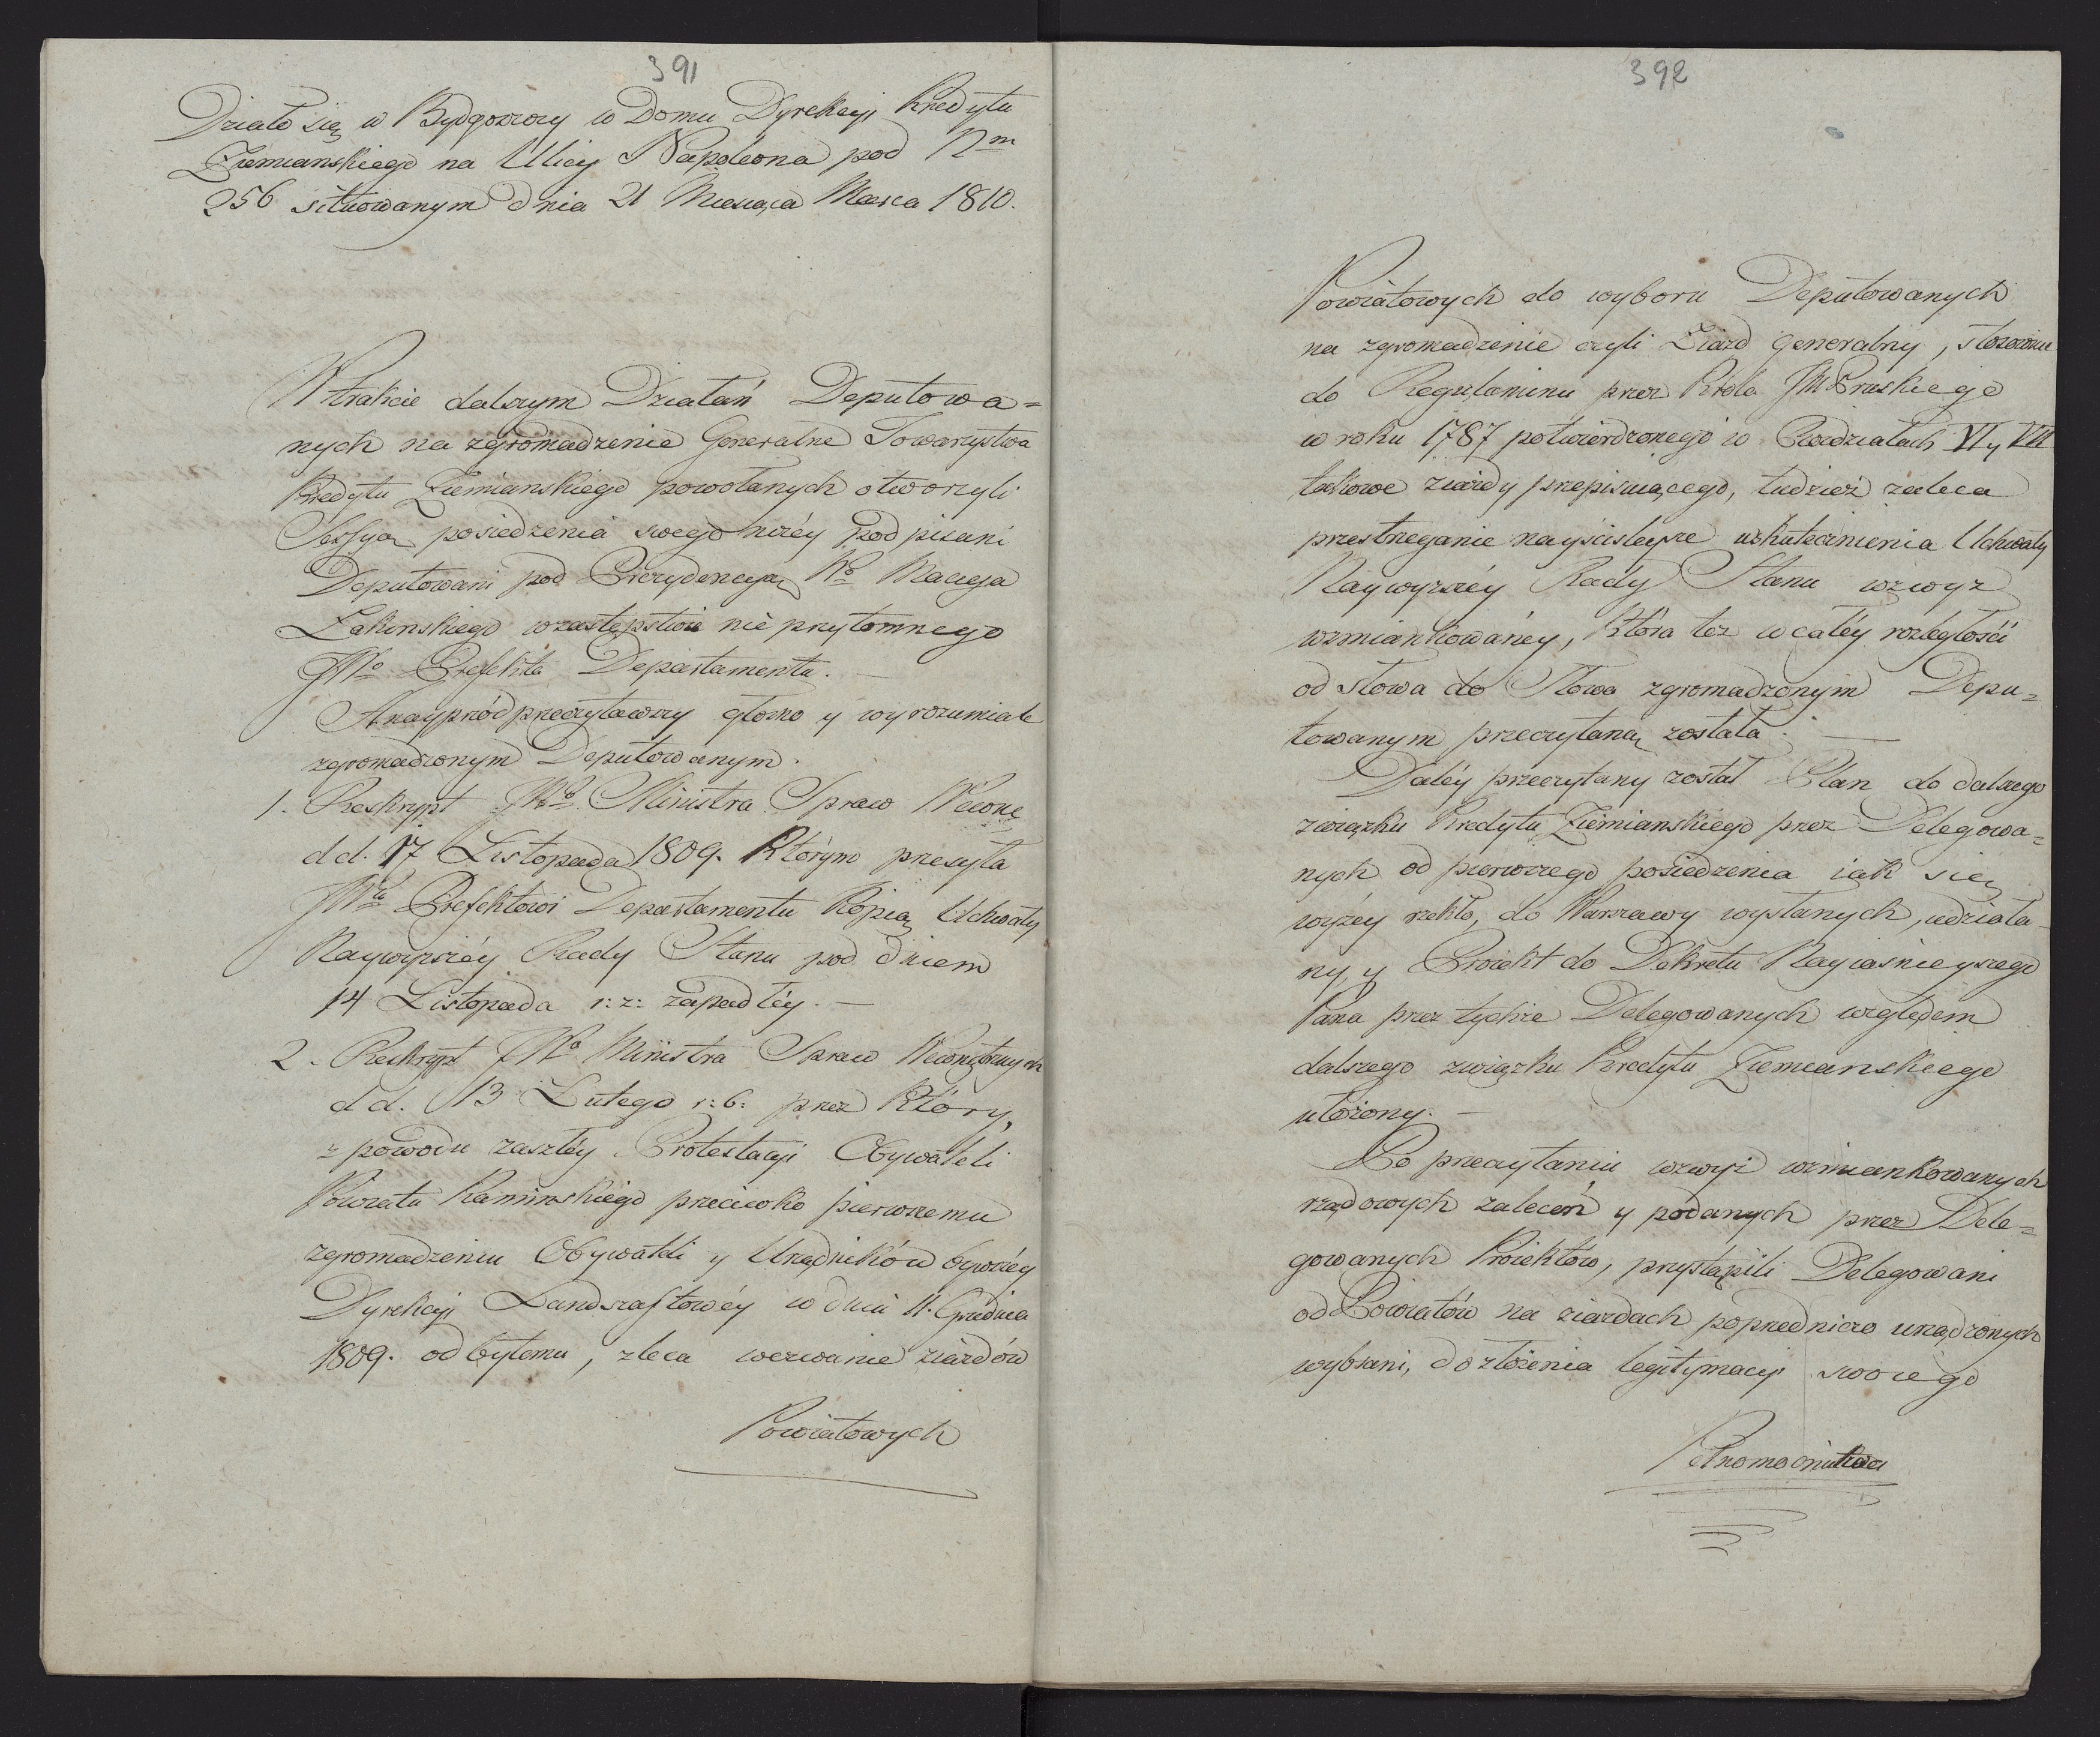 391
Działo się w Bydgoszczy w Domu Dyrekcyi Kredytu
Ziemianskiego na Ulicy Napoleona pod Nm
256 situowanym dnia 21 Miesiąca Marca 1810.
W trakcie dalszym Działań Deputowa=
nych na zgromadzenie Generalne Towarzystwa
Kredytu Ziemianskiego powołanych otworzyli
Sessyą posiedzenia swego niżéy podpisani
Deputowani pod Prezydencyą Wo Macieja
w zastępstwie nie przytomnego
JWo Prefekta Departamentu. —
A nayprzód przeczytawszy głośno y wyrozumiale
zgromadzonym Deputowanym.
1. Reskrypt JWo Ministra Spraw Wewnę
dd. 17 Listopada 1809. Którym przesyła
JWu Prefektowi Departamentu Kopią Uchwały
Naywyższéy Rady Stanu pod dniem
14 Listopada r: z: zapadłéy. —
2. Reskrypt JWo Ministra Spraw Wewnętrznych
dd. 13 Lutego r: b: przez Który,
z powodu zaszłéy Protestacyi Obywateli
Powiatu Kaminskiego przeciwko pierwszemu
zgromadzeniu Obywateli y Urzędników bywszéy
Dyrekcyi Landszaftowéy w dniu 11. Grudnia
1809. odbytemu, zleca wezwanie ziazdów
Powiatowych
392
Powiatowych do wyboru Deputowanych
na zgromadzenie czyli Ziazd generalny, stosownie
do Regulaminu przez Króla JM Pruskiego
w roku 1787 potwierdzonego w Rozdziałach VI y VII
takowe ziazdy przepisuiącego, tudzież zaleca
przestrzeganie nayściśleysze uskutecznienia Uchwały
Naywyższéy Rady Stanu wzwyz
wzmiankowanéy, Która też w całéy rozległości
od słowa do Słowa zgromadzonym Depu=
towanym przeczytaną została. —
Daléy przeczytany został Plan do dalszego
związku Kredytu Ziemianskiego przez Delegowa=
nych od pierwszego posiedzenia iak się
wyżéy rzekło, do Warszawy wysłanych, udziała=
ny, y Proiekt do Dekretu Nayiaśnieyszego
Pana przez tychże Delegowanych względem
dalszego związku Kredytu Ziemianskiego
ułożony. —
Po przeczytaniu wzwyż wzmiankowanych
rządowych zaleceń y podanych przez Dele=
gowanych Proiektów, przystąpili Delegowani
od Powiatów na ziazdach poprzedniczo urządzonych
wybrani, do złożenia legitymacyi swoiego
Pełnomocnictwa